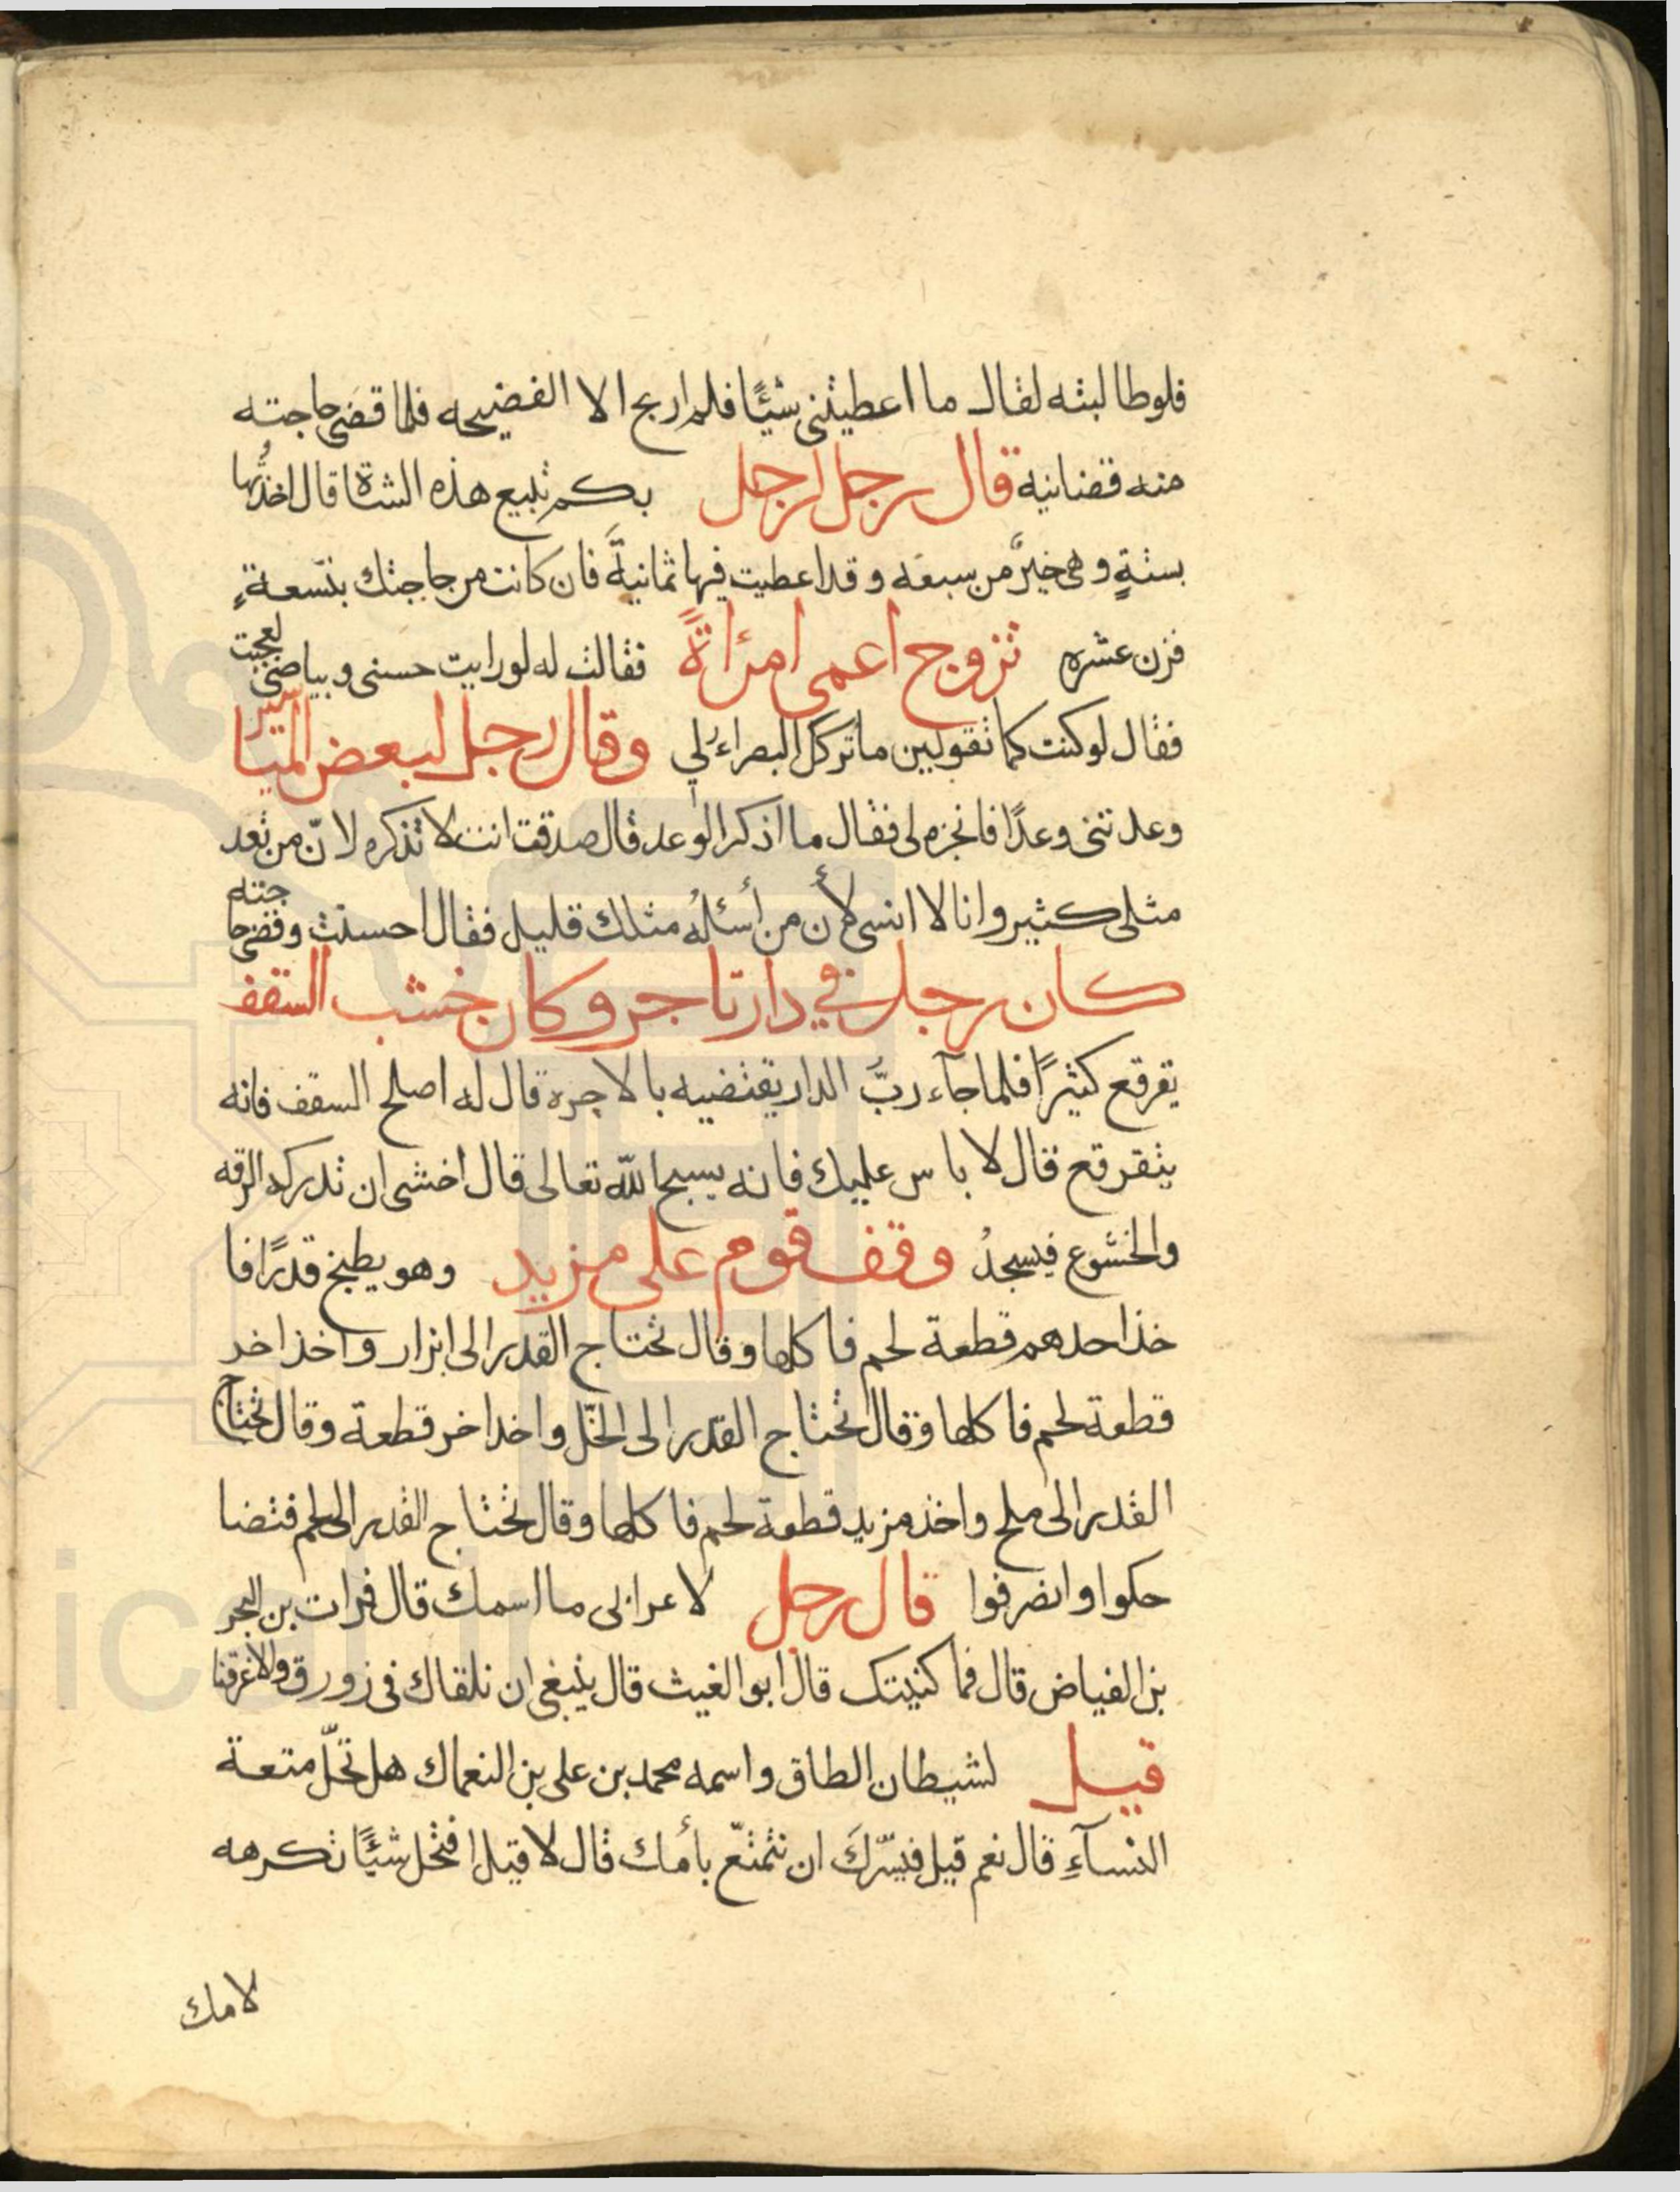 فلوطالبته لقال ما اعطيتنى شئًا فلم اربح الا الفضيحه فلما قضى حاجته
منه قضانيه قال رجل لرجل بكم تبيع هذه الشاة قال اخذتُها
بستةٍ وهى خيرٌ من سبعه وقد اعطيت فيها ثمانيةً فان كانت من حاجتك بتسعةٍ
فزن عشره تزوج اعمى امرٔاةً فقالت له لو رايت حسنى وبياضى لعجبت
فقال لو كنت كما تقولين ما تركك البصراء لي وقال رجل لبعض المتيا سير
وعدتنى وعدًا فانجزه لى فقال ما اذكر الوعد قال صدقت انت لا تذكره لانّ من تعد
مثلى كثير وانا لا انسى لأن من أسئلهُ مثلك قليل فقال احسنت وقضى حا جته
كان رجل في دار تاجر وكان خشب السقف
يقرقع كثيرًا فلما جآء ربّ الدار يقتضيه بالاجره قال له اصلح السقف فانه
يتقرقع قال لا باس عليك فانه يسبح الله تعالى قال اخشى ان تدركه الرقه
والخشوع فيسجدُ وقف قوم على مزيد وهو يطبخ قدرًا فا
خذ احدهم قطعة لحم فاكلها وقال تحتاج القدر الى ابزار واخذ اخر
قطعة لحم فاكلها وقال تحتاج القدر الى الخلّ واخذ اخر قطعة وقال تحتاج
القدر الى ملح واخذ مزيد قطعة لحم فاكلها وقال تحتاج القدر الى لحم فتضا
حكوا وانصرفوا قال رجل لاعرابى ما اسمك قال فرات بن البحر
بن الفياض قال فما كنيتك قال ابو الغيث قال ينبغى ان نلقاك فى زورق والا غرقنا
قيل لشيطان الطاق واسمه محمد بن على بن النعماك هل تحلّ متعة
النسآءِ قال نعم قيل فيسّركَ ان تتمتّع بأمك قال لا قيل افتحل شئًا تكرهه
لامك